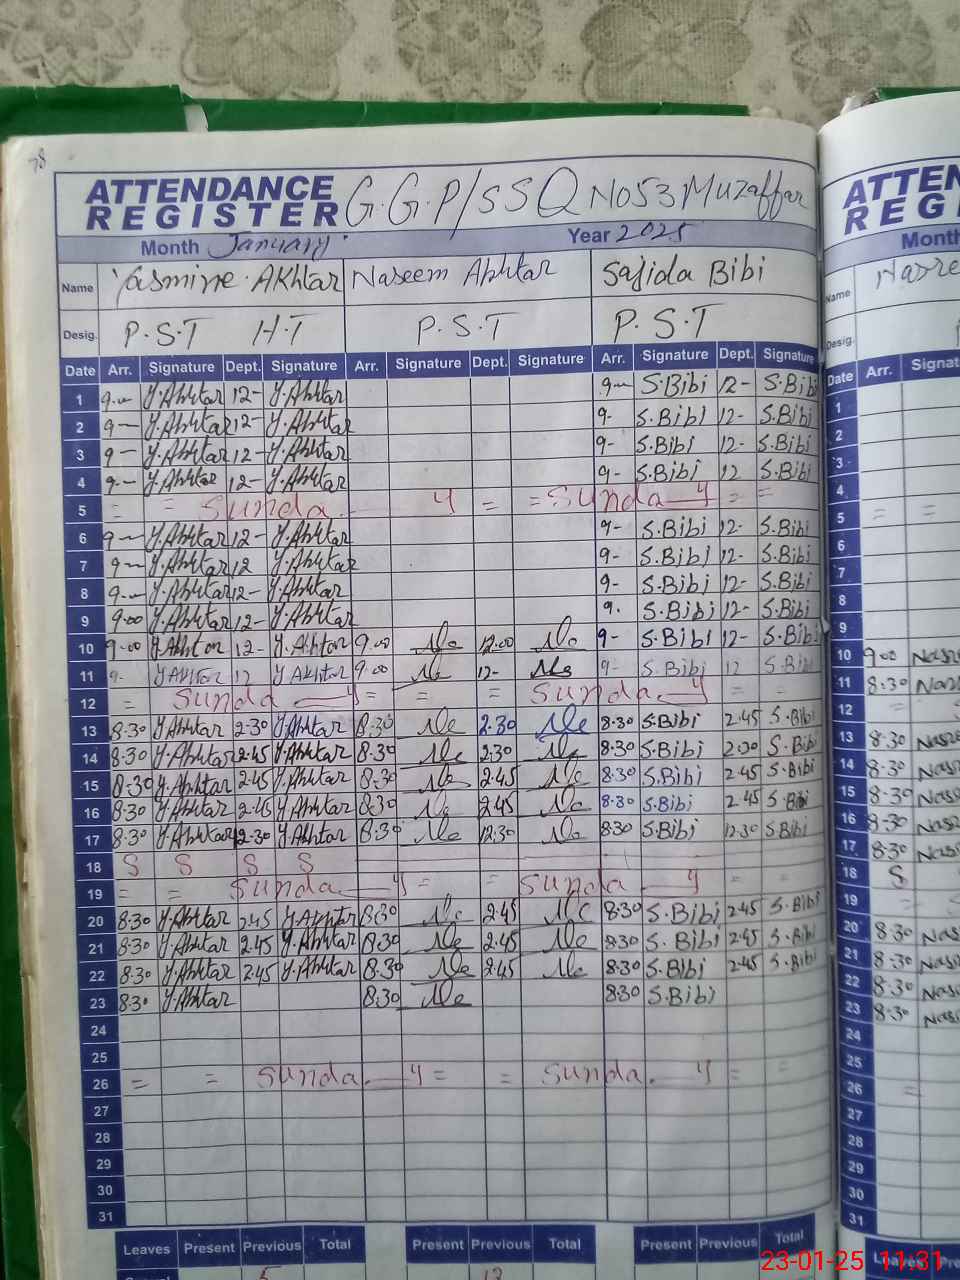 78
ATTENDANCE REGISTER G.G.P/SS Q No 53 Muzaffar
Month January Year 2025
Name Yasmine Akhtar Naseem Akhtar Sajida Bibi
Desig. P.S.T H.T P.S.T P.S.T
Date Arr. Signature Dept. Signature Arr. Signature Dept. Signature Arr. Signature Dept. Signature
1 9- Y.Akhtar 12- Y.Akhtar 9- S.Bibi 12- S.Bibi
2 9- Y.Akhtar 12- Y.Akhtar 9- S.Bibi 12- S.Bibi
3 9- Y.Akhtar 12- Y.Akhtar 9- S.Bibi 12- S.Bibi
4 9- Y.Akhtar 12- Y.Akhtar 9- S.Bibi 12 S.Bibi
5 = = Sunda y = = Sunda y = =
6 9- Y.Akhtar 12- Y.Akhtar 9- S.Bibi 12- S.Bibi
7 9- Y.Akhtar 12 Y.Akhtar 9- S.Bibi 12- S.Bibi
8 9- Y.Akhtar 12- Y.Akhtar 9- S.Bibi 12- S.Bibi
9 9.00 Y.Akhtar 12- Y.Akhtar 9. S.Bibi 12- S.Bibi
10 9.00 Y.Akhtar 12- Y.Akhtar 9.00 12.00 9- S.Bibi 12- S.Bibi
11 9- Y.Akhtar 12 Y.Akhtar 9.00 12- 9- S.Bibi 12 S.Bibi
12 = Sunda y = = = Sunda y = =
13 8.30 Y.Akhtar 2.30 Y.Akhtar 8.30 2.30 8.30 S.Bibi 2.45 S.Bibi
14 8.30 Y.Akhtar 2.45 Y.Akhtar 8.30 2.30 8.30 S.Bibi 2.30 S.Bibi
15 8.30 Y.Akhtar 2.45 Y.Akhtar 8.30 2.45 8.30 S.Bibi 2.45 S.Bibi
16 8.30 Y.Akhtar 2.45 Y.Akhtar 8.30 2.45 8.30 S.Bibi 2.45 S.Bibi
17 8.30 Y.Akhtar 12.30 Y.Akhtar 8.30 12.30 8.30 S.Bibi 12.30 S.Bibi
18 S S S S
19 = = Sunda y = = Sunda y = =
20 8.30 Y.Akhtar 2.45 Y.Akhtar 8.30 2.45 8.30 S.Bibi 2.45 S.Bibi
21 8.30 Y.Akhtar 2.45 Y.Akhtar 8.30 2.45 8.30 S.Bibi 2.45 S.Bibi
22 8.30 Y.Akhtar 2.45 Y.Akhtar 8.30 2.45 8.30 S.Bibi 2.45 S.Bibi
23 8.30 Y.Akhtar 8.30 8.30 S.Bibi
24
25
26 = = Sunda y = = Sunda y = =
27
28
29
30
31
Leaves Present Previous Total Present Previous Total Present Previous Total
5 13
ATTEN
REG
Month
Name
Desig.
Date Arr. Signat
1
2
3
4
5 = =
6
7
8
9
10 9.00
11 8.30
12 =
13 8.30
14 8.30
15 8.30
16 8.30
17 8.30
18 S
19 =
20 8.30
21 8.30
22 8.30
23 8.30
24
25
26 =
27
28
29
30
31
Leaves Pre
23-01-25 11:31